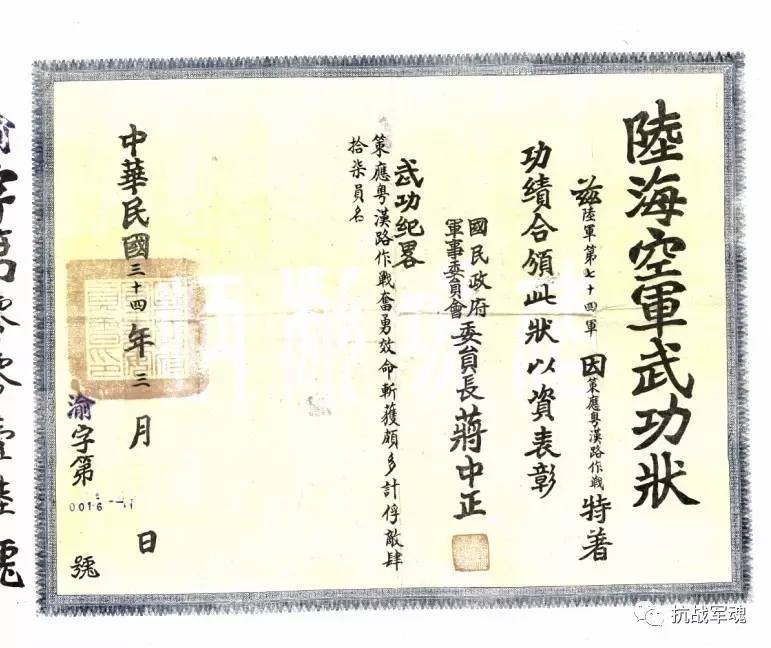 陸海空軍武功狀
兹陸軍第七十四軍因策應粵漢路作戰特著
功績合頒此狀以資表彰
國民政府
軍事委員會委員長蔣中正
武功紀畧
策應粵漢路作戰奮勇效命斬獲頗多計俘敵肆
拾柒員名
中華民國三十四年三月 日
渝字第0016號
渝字第零零壹陸號
抗战军魂